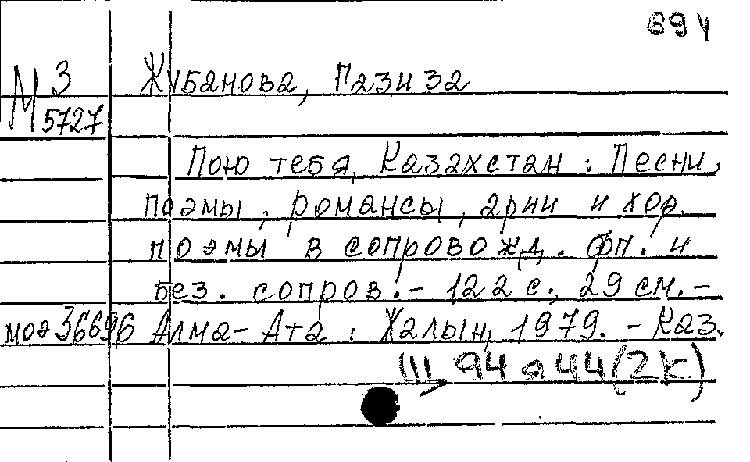 694
М 3
5727
Жубанова, Газиза
Пою тебя, Казахстан : Песни,
поэмы, романсы, арии и хор.
поэмы в сопровожд. фп. и
без. сопров. - 122 с., 29 см. -
моэ36696 Алма-Ата : Жалын, 1979. - Каз.
Ш, 94 а 44 (2К)